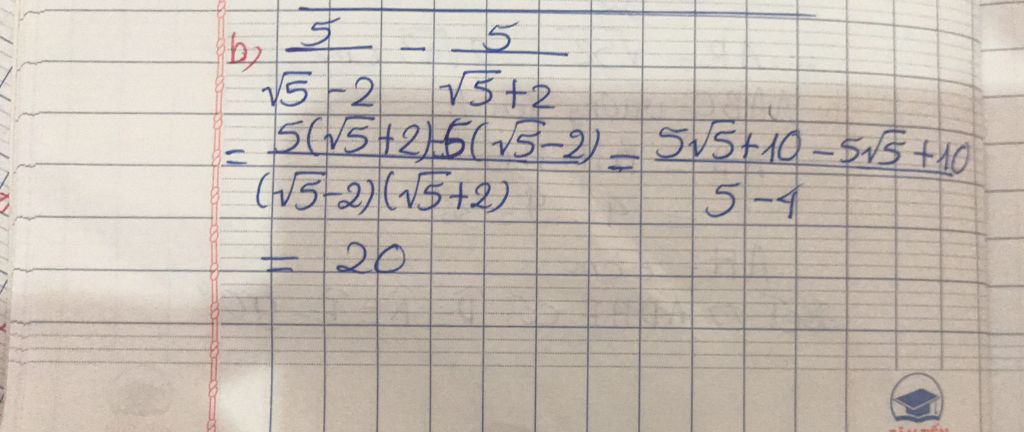 b) 5/(√5-2) - 5/(√5+2)
= (5(√5+2)-5(√5-2))/((√5-2)(√5+2)) = (5√5+10-5√5+10)/(5-4)
= 20